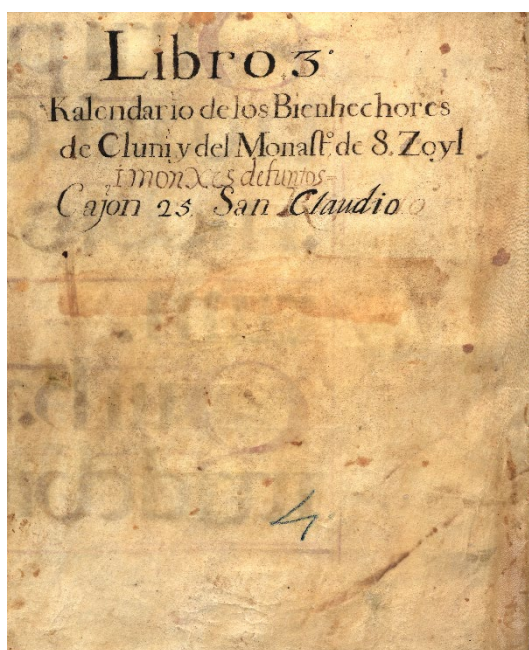 Libro 3º
Kalendario de los Bienhechores
de Cluni y del Monastº. de S. Zoyl
i monxes defuntos
Cajon 25 San Claudio
4